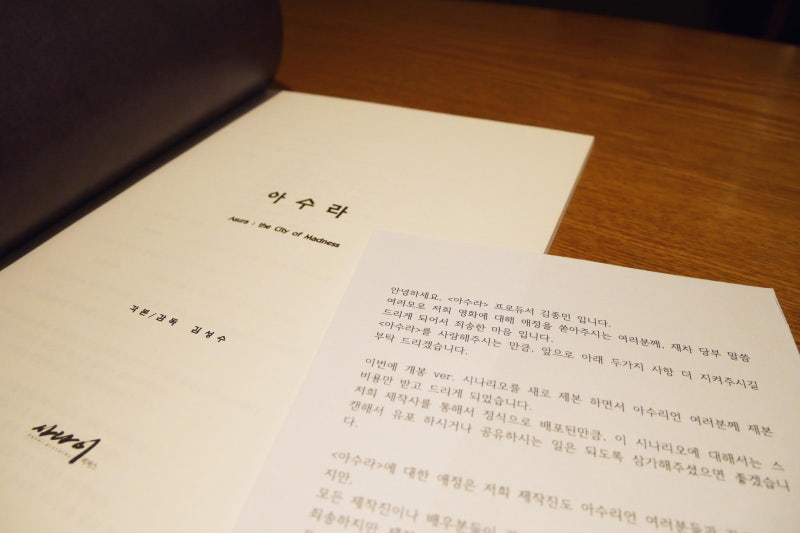 아수라
Asura : the City of Madness
각본/감독 김성수
사나이
픽처스
안녕하세요, <아수라> 프로듀서 김종민 입니다.
여러모로 저희 영화에 대해 애정을 쏟아주시는 여러분께, 재차 당부 말씀
드리게 되어서 죄송한 마음 입니다.
<아수라>를 사랑해주시는 만큼, 앞으로 아래 두가지 사항 더 지켜주시길
부탁 드리겠습니다.
이번에 개봉 ver. 시나리오를 새로 제본 하면서 아수리언 여러분께 제본
비용만 받고 드리게 되었습니다.
저희 제작사를 통해서 정식으로 배포된만큼, 이 시나리오에 대해서는 스
캔해서 유포 하시거나 공유하시는 일은 되도록 삼가해주셨으면 좋겠습니
다.
<아수라>에 대한 애정은 저희 제작진도 아수리언 여러분들과
지만,
모든 제작진이나 배우분들이
죄송하지만